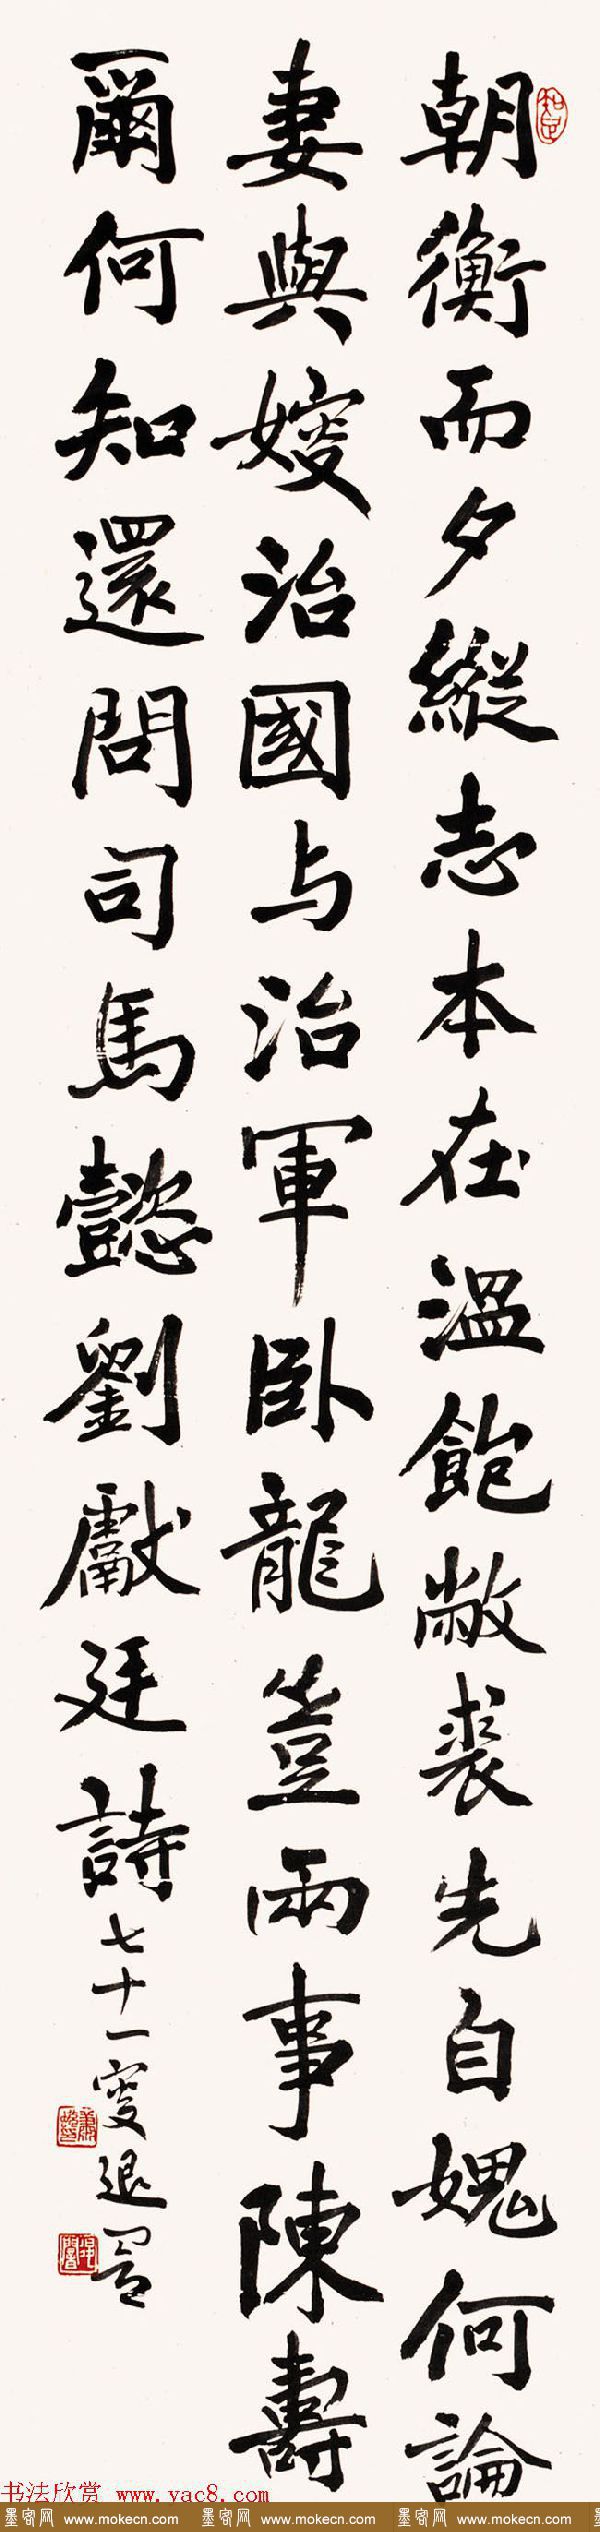 朝衡而夕縱志本在溫飽敝裘先自媿何論
妻與嫂治國与治軍卧龍豈兩事陳壽
爾何知還問司馬懿劉獻廷詩
七十一叟退闇
书法欣赏 www.yac8.com
墨客网 www.mokecn.com 墨客网 www.mokecn.com 墨客网 www.mokecn.com